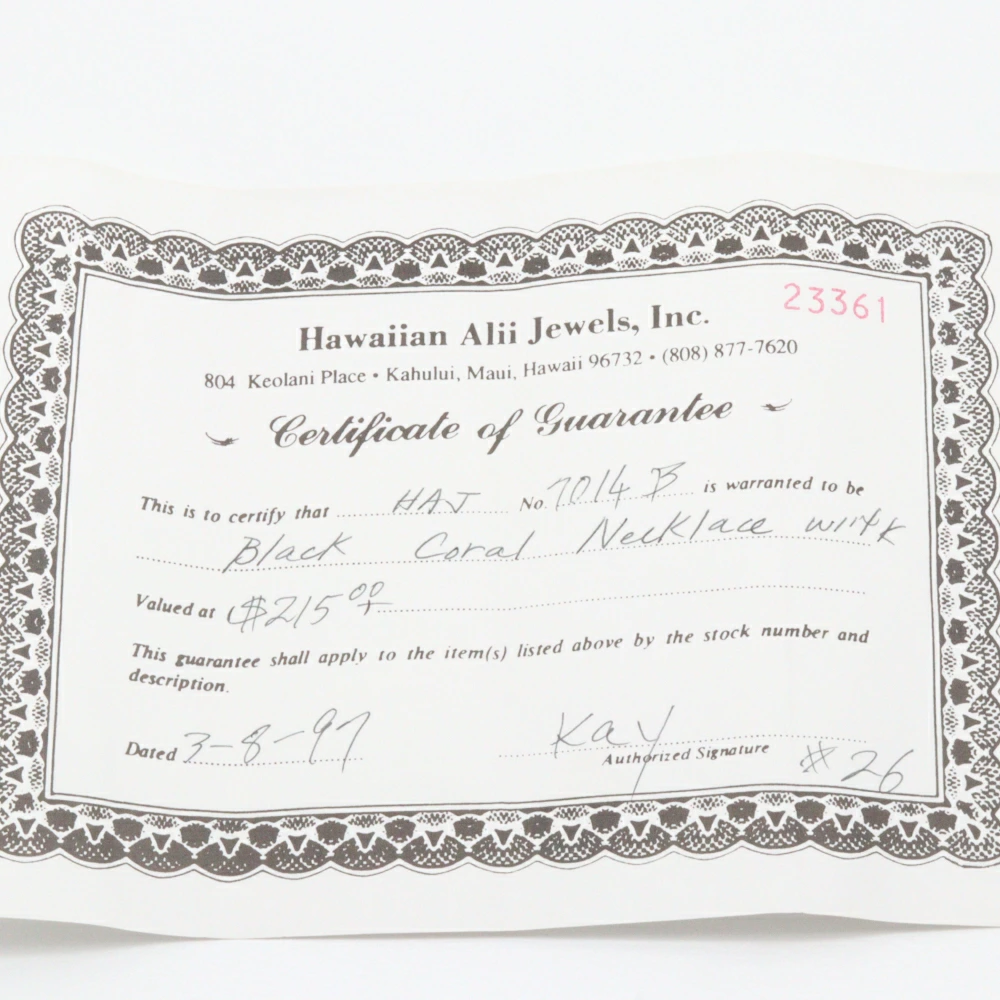 23361
Hawaiian Alii Jewels, Inc.
804 Keolani Place • Kahului, Maui, Hawaii 96732 • (808) 877-7620
Certificate of Guarantee
This is to certify that HAJ No. 7014 B is warranted to be
Black Coral Necklace
Valued at $215.00
This guarantee shall apply to the item(s) listed above by the stock number and
description.
Dated 3-8-97 Kay
Authorized Signature #26